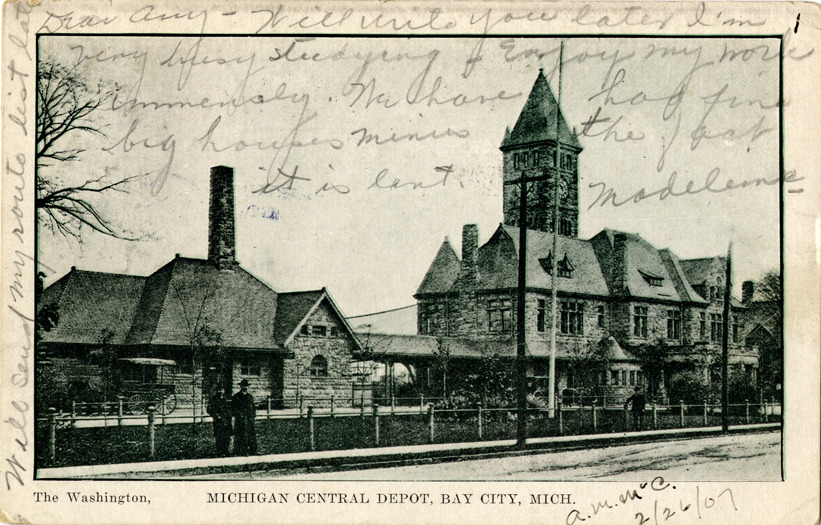 Dear Amy – Will write you later I'm
very busy studying & Enjoy my work
immensely. We have had fine
big houses minus the fact
it is lent.
Madeleine
Will send my route list late
The Washington,
MICHIGAN CENTRAL DEPOT, BAY CITY, MICH.
a.m. McC.
2/26/07
1